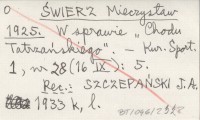 O ŚWIERZ Mieczysław
1925. W sprawie "Chodu
Tatrzańskiego". – Kur. Sport.
1, nr 28 (16 IX): 5.
Rec.: SZCZEPAŃSKI J. A.
1933 k, l.